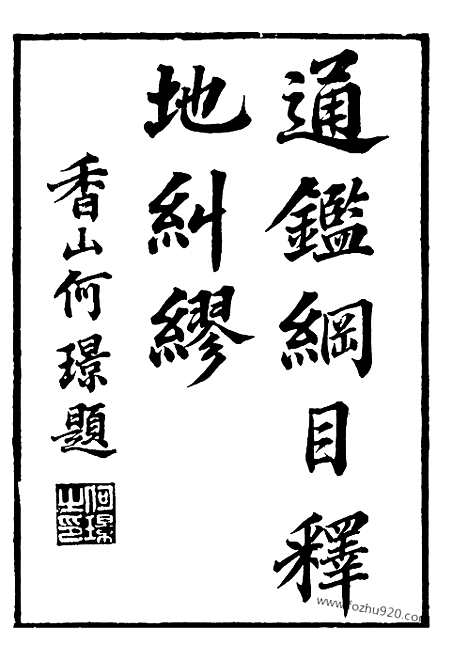 通鑑綱目釋
地糾繆
香山何璟題
何璟之印
www.fozhu920.com